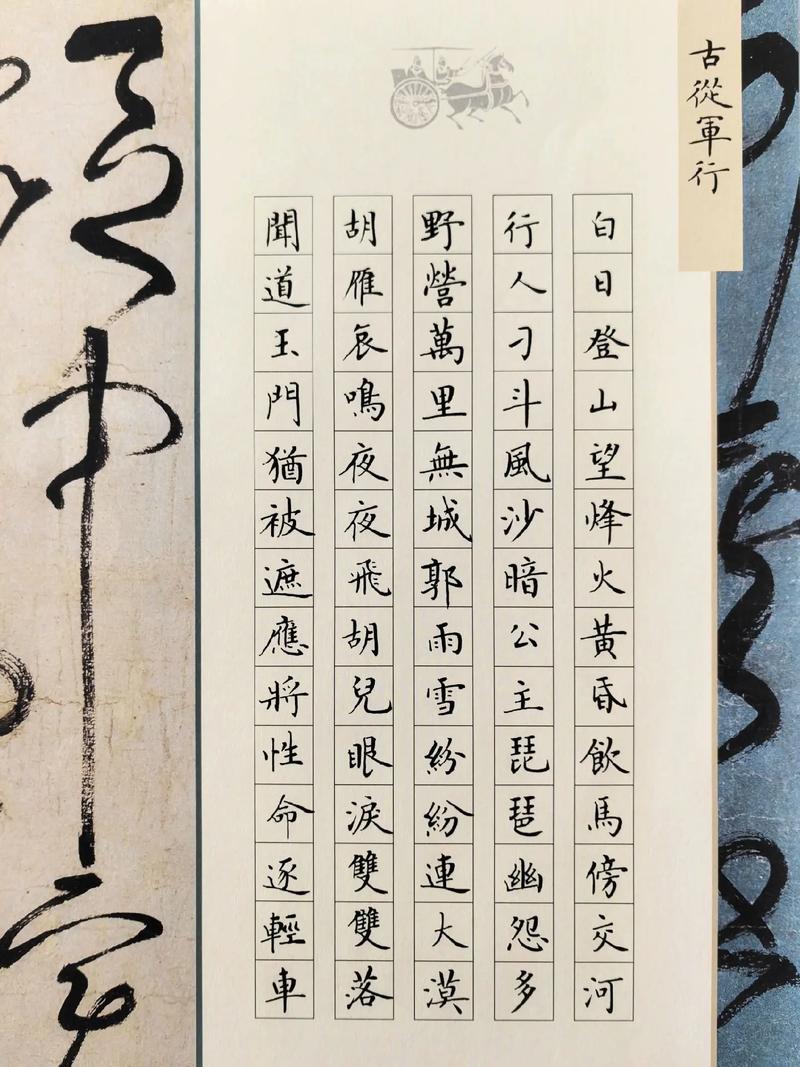 古從軍行
白日登山望烽火黃昏飲馬傍交河
行人刁斗風沙暗公主琵琶幽怨多
野營萬里無城郭雨雪紛紛連大漠
胡雁哀鳴夜夜飛胡兒眼淚雙雙落
聞道玉門猶被遮應將性命逐輕車